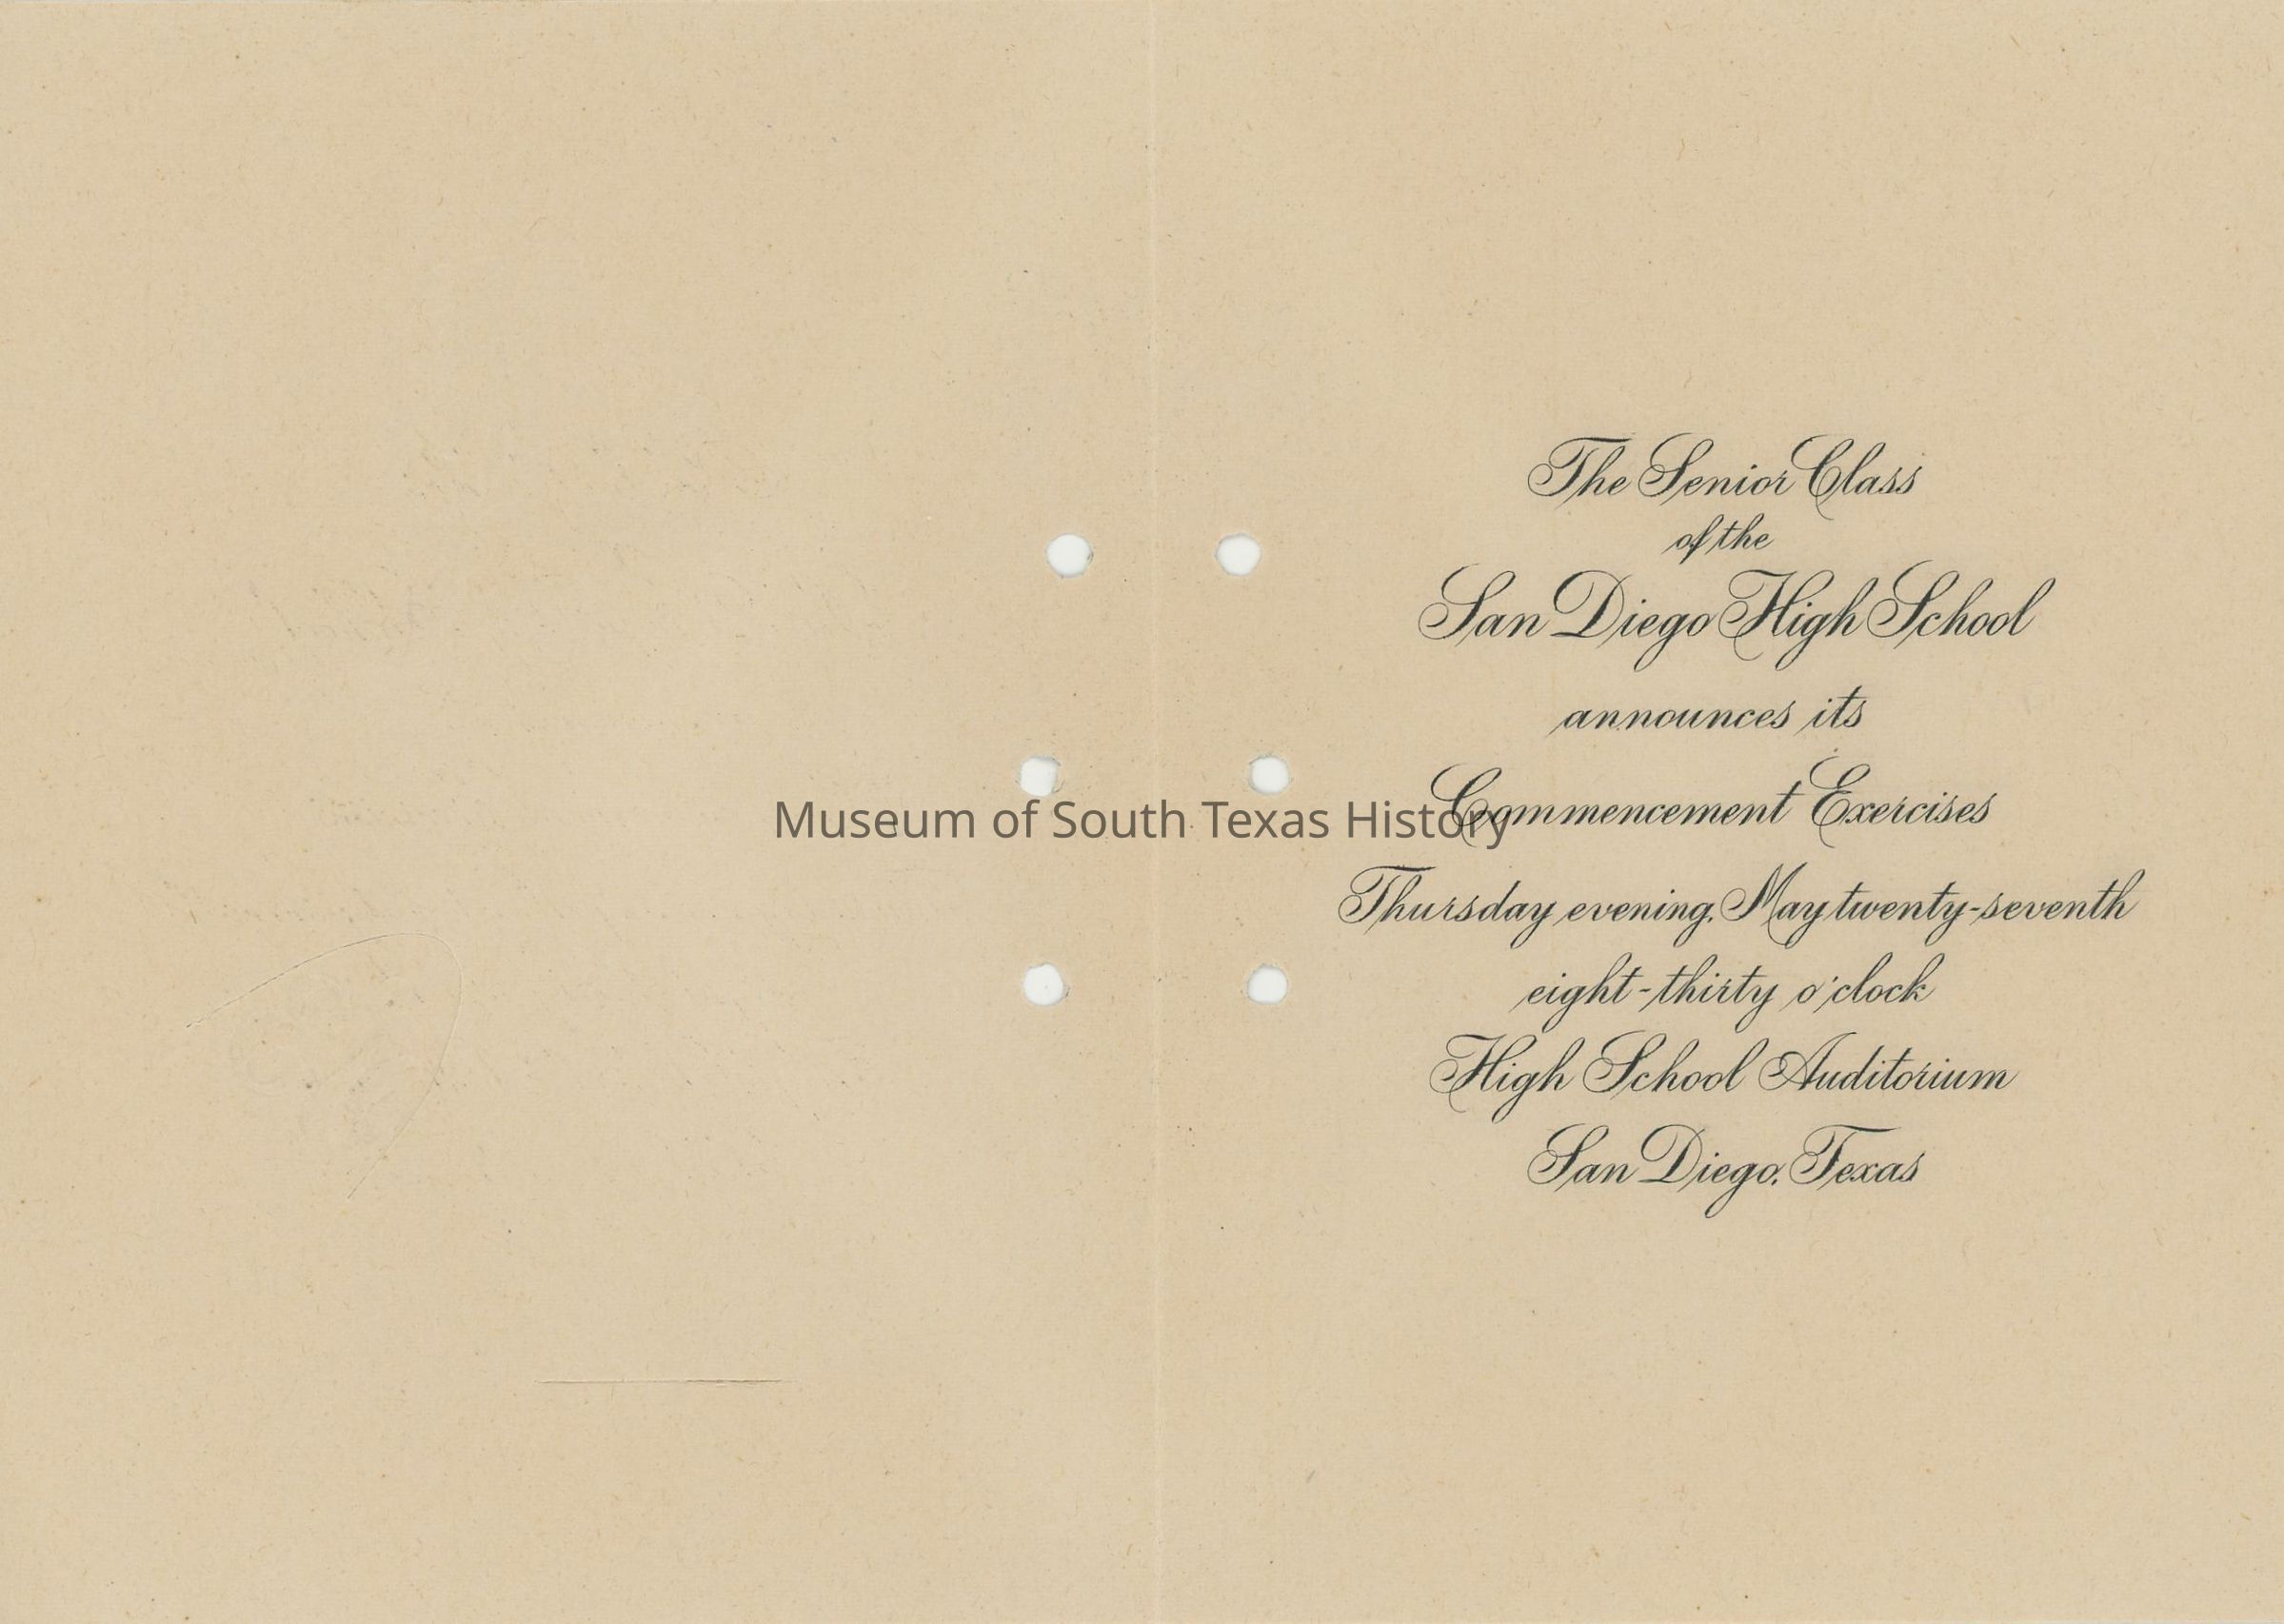 The Senior Class
of the
San Diego High School
announces its
Commencement Exercises
Museum of South Texas History
Thursday evening, May twenty-seventh
eight-thirty o'clock
High School Auditorium
San Diego, Texas